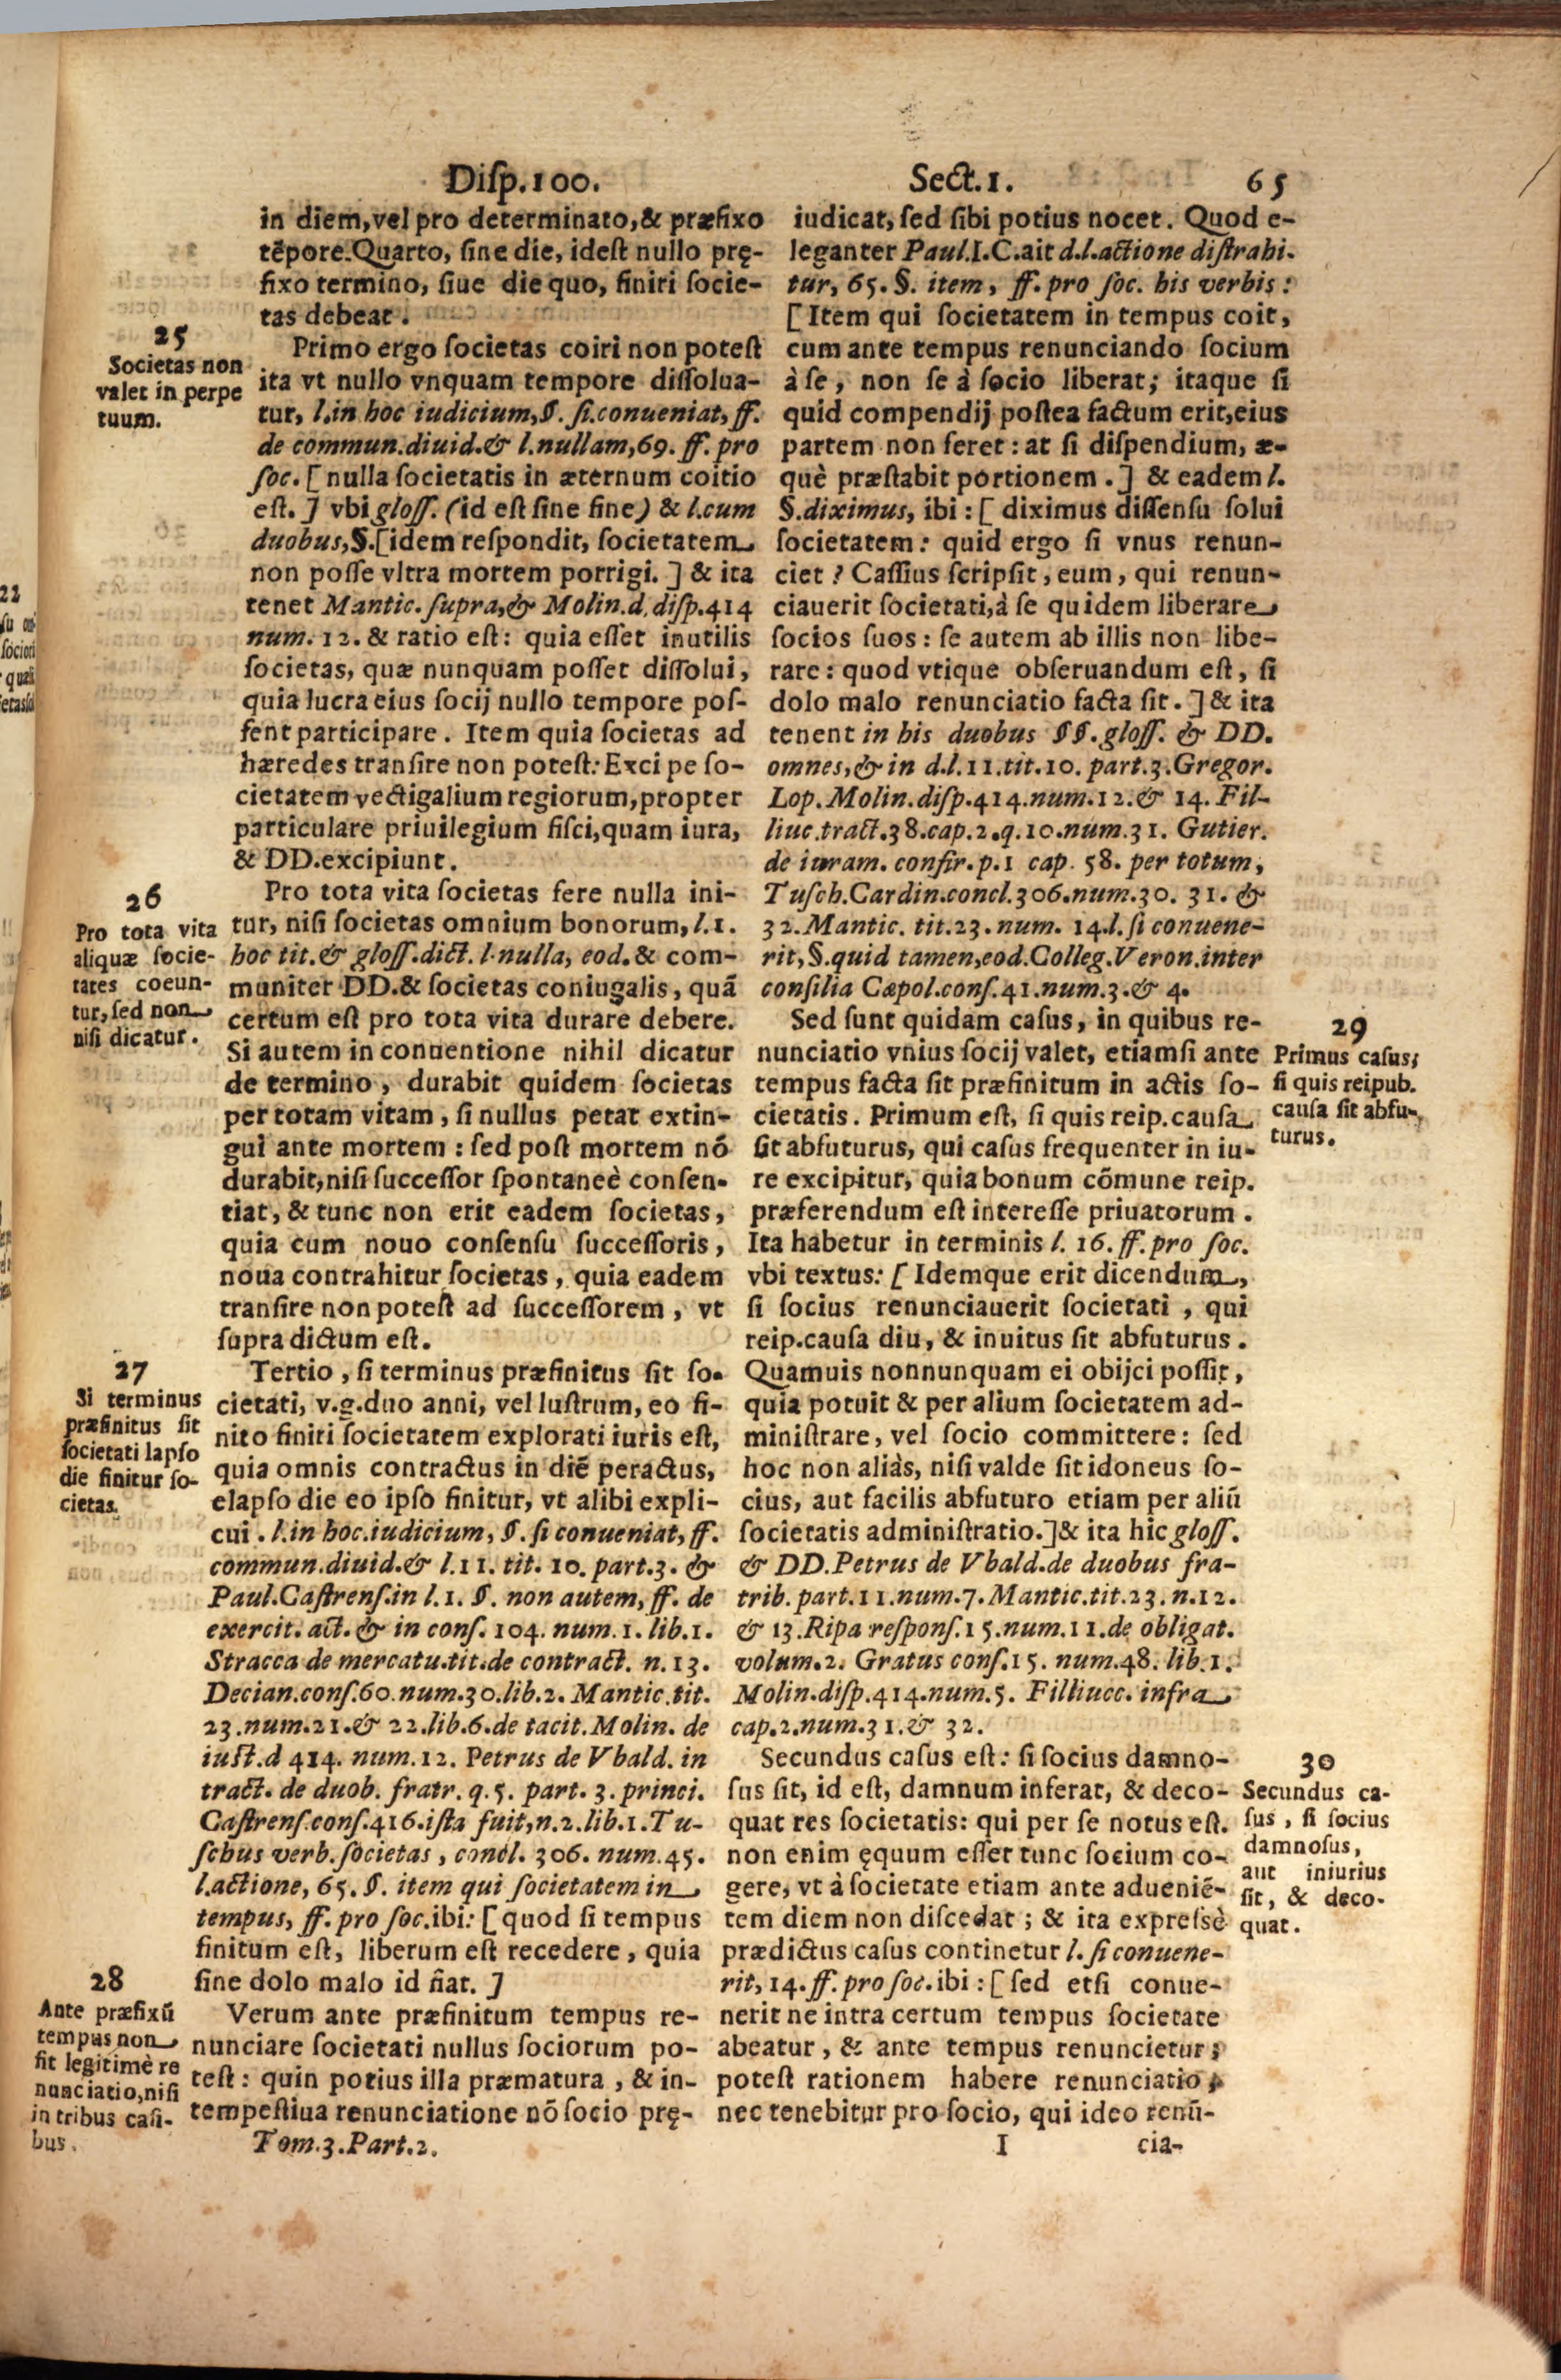 Disp.100. Sect.1. 65
in diem,vel pro determinato,& præfixo
tẽpore.Quarto, sine die, idest nullo prę-
fixo termino, siue die quo, finiri socie-
tas debeat.
25
Societas non
valet in perpe
tuum.
Primo ergo societas coiri non potest
ita vt nullo vnquam tempore dissolua-
tur, l.in hoc iudicium,§. si.conueniat, ff.
de commun.diuid.& l.nullam,69. ff. pro
soc. [ nulla societatis in æternum coitio
est. ] vbi gloss. (id est sine fine) & l.cum
duobus,§.[idem respondit, societatem
non posse vltra mortem porrigi. ] & ita
tenet Mantic. supra,& Molin.d.disp.414
num. 12. & ratio est: quia esset inutilis
societas, quæ nunquam posset dissolui,
quia lucra eius socij nullo tempore pos-
sent participare. Item quia societas ad
hæredes transire non potest: Excipe so-
cietatem vectigalium regiorum,propter
particulare priuilegium fisci,quam iura,
& DD.excipiunt.
26
Pro tota vita
aliquæ socie-
tates coeun-
tur, sed non
nisi dicatur.
Pro tota vita societas fere nulla ini-
tur, nisi societas omnium bonorum, l.1.
hoc tit.& gloss.dict. l.nulla, eod.& com-
muniter DD.& societas coniugalis, quã
certum est pro tota vita durare debere.
Si autem in conuentione nihil dicatur
de termino, durabit quidem societas
per totam vitam, si nullus petat extin-
gui ante mortem : sed post mortem nõ
durabit,nisi successor spontaneè consen-
tiat, & tunc non erit eadem societas,
quia cum nouo consensu successoris,
noua contrahitur societas, quia eadem
transire non potest ad successorem, vt
supra dictum est.
27
Si terminus
præfinitus sit
societati lapso
die finitur so-
cietas.
Tertio, si terminus præfinitus sit so-
cietati, v.g.duo anni, vel lustrum, eo fi-
nito finiri societatem explorati iuris est,
quia omnis contractus in diẽ peractus,
elapso die eo ipso finitur, vt alibi expli-
cui. l.in hoc.iudicium, §. si conueniat, ff.
commun.diuid.& l.11. tit. 10. part.3. &
Paul.Castrens.in l.1. §. non autem, ff. de
exercit. act. & in cons. 104. num. 1. lib.1.
Stracca de mercatu.tit.de contract. n.13.
Decian.cons.60.num.30.lib.2. Mantic.tit.
23.num.21.& 22.lib.6.de tacit.Molin. de
iust.d 414. num.12. Petrus de Vbald. in
tract. de duob. fratr. q.5. part. 3. princi.
Castrens.cons.416.ista fuit,n.2.lib.1.Tu-
schus verb.societas, concl. 306. num.45.
l.actione, 65. §. item qui societatem in
tempus, ff. pro soc.ibi: [ quod si tempus
finitum est, liberum est recedere, quia
sine dolo malo id fiat. ]
28
Ante præfixũ
tempus non
fit legitimè re
nunciatio,nisi
in tribus casi-
bus.
Verum ante præfinitum tempus re-
nunciare societati nullus sociorum po-
test: quin potius illa præmatura, & in-
tempestiua renunciatione nõ socio prę-
Tom.3.Part.2.
iudicat, sed sibi potius nocet. Quod e-
leganter Paul.I.C.ait d.l.actione distrahi-
tur, 65. §. item, ff. pro soc. his verbis:
[ Item qui societatem in tempus coit,
cum ante tempus renunciando socium
à se, non se à socio liberat; itaque si
quid compendij postea factum erit,eius
partem non feret: at si dispendium, æ-
què præstabit portionem. ] & eadem l.
§.diximus, ibi : [ diximus dissensu solui
societatem: quid ergo si vnus renun-
ciet ? Cassius scripsit, eum, qui renun-
ciauerit societati,à se quidem liberare
socios suos: se autem ab illis non libe-
rare: quod vtique obseruandum est, si
dolo malo renunciatio facta sit. ] & ita
tenent in his duobus §§. gloss. & DD.
omnes,& in d.l.11.tit.10. part.3.Gregor.
Lop.Molin.disp.414.num.12.& 14. Fil-
liuc.tract.38.cap.2.q.10.num.31. Gutier.
de iuram. confir. p.1 cap. 58. per totum,
Tusch.Cardin.concl.306.num.30. 31. &
32.Mantic. tit.23.num. 14.l.si conuene-
rit,§.quid tamen,eod.Colleg.Veron.inter
consilia Cæpol.cons.41.num.3.& 4.
29
Primus casus;
si quis reipub.
causa sit abfu-
turus.
Sed sunt quidam casus, in quibus re-
nunciatio vnius socij valet, etiamsi ante
tempus facta sit præfinitum in actis so-
cietatis. Primum est, si quis reip.causa
sit abfuturus, qui casus frequenter in iu-
re excipitur, quia bonum cõmune reip.
præferendum est interesse priuatorum.
Ita habetur in terminis l. 16. ff. pro soc.
vbi textus: [ Idemque erit dicendum,
si socius renunciauerit societati, qui
reip.causa diu, & inuitus sit abfuturus.
Quamuis nonnunquam ei obijci possit,
quia potuit & per alium societatem ad-
ministrare, vel socio committere: sed
hoc non aliàs, nisi valde sit idoneus so-
cius, aut facilis abfuturo etiam per aliũ
societatis administratio.]& ita hic gloss.
& DD.Petrus de Vbald.de duobus fra-
trib. part.11.num.7.Mantic.tit.23. n.12.
& 13.Ripa respons.15.num.11.de obligat.
volum.2. Gratus cons.15. num.48. lib.1.
Molin.disp.414.num.5. Filliucc. infra
cap.2.num.31.& 32.
30
Secundus ca-
sus, si socius
damnosus,
aut iniurius
sit, & deco-
quat.
Secundus casus est: si socius damno-
sus sit, id est, damnum inferat, & deco-
quat res societatis: qui per se notus est.
non enim ęquum esset tunc socium co-
gere, vt à societate etiam ante adueniẽ-
tem diem non discedat ; & ita expressè
prædictus casus continetur l. si conuene-
rit, 14. ff. pro soc. ibi : [ sed etsi conue-
nerit ne intra certum tempus societate
abeatur, & ante tempus renuncietur;
potest rationem habere renunciatio,
nec tenebitur pro socio, qui ideo renũ-
I cia-